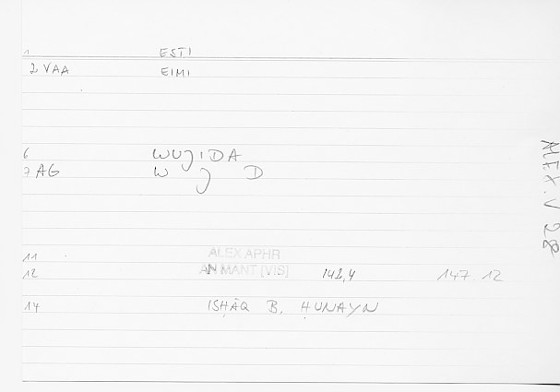 1 ESTI
2 VAA EIMI
6 WUJIDA
7 AG W J D
11 ALEX APHR
12 AN MANT [VIS] 142,4 147 12
14 ISḤĀQ B. ḤUNAYN
ALEX.V 28